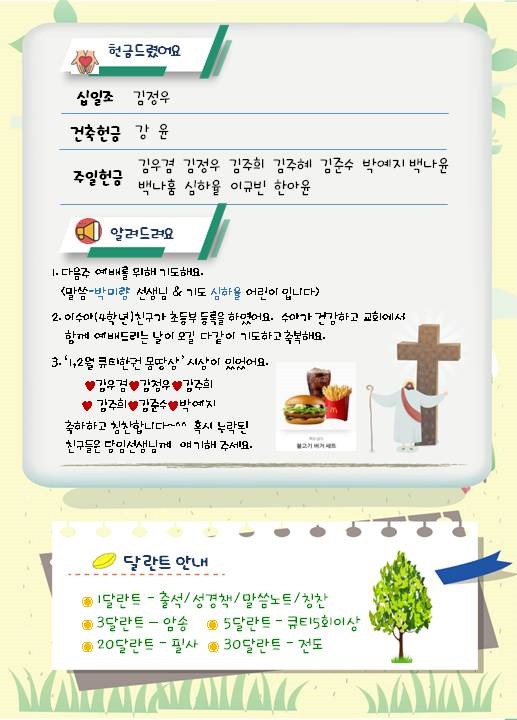 헌금드렸어요
십일조 김정우
건축헌금 강 윤
주일헌금 김우겸 김정우 김주희 김주혜 김준수 박예지 백나윤
백나훔 심하율 이규빈 한아윤
알려드려요
1. 다음주 예배를 위해 기도해요.
<말씀-박미량 선생님 & 기도 심하율 어린이 입니다>
2. 이수아(4학년)친구가 초등부 등록을 하였어요. 수아가 건강하고 교회에서
함께 예배드리는 날이 오길 다같이 기도하고축복해요.
3. '1,2월 큐티한권 몽땅상' 시상이 있었어요.
♥김우겸♥김정우♥김주희
♥ 김주희♥김준수♥박예지
축하하고 칭찬합니다~^^ 혹시 누락된
친구들은 담임선생님께 얘기해 주세요.
불고기 버거 세트
달란트 안내
1달란트 - 출석/성경책/말씀노트/칭찬
3달란트 - 암송 5달란트 - 큐티5회이상
20달란트 - 필사 30달란트 - 전도